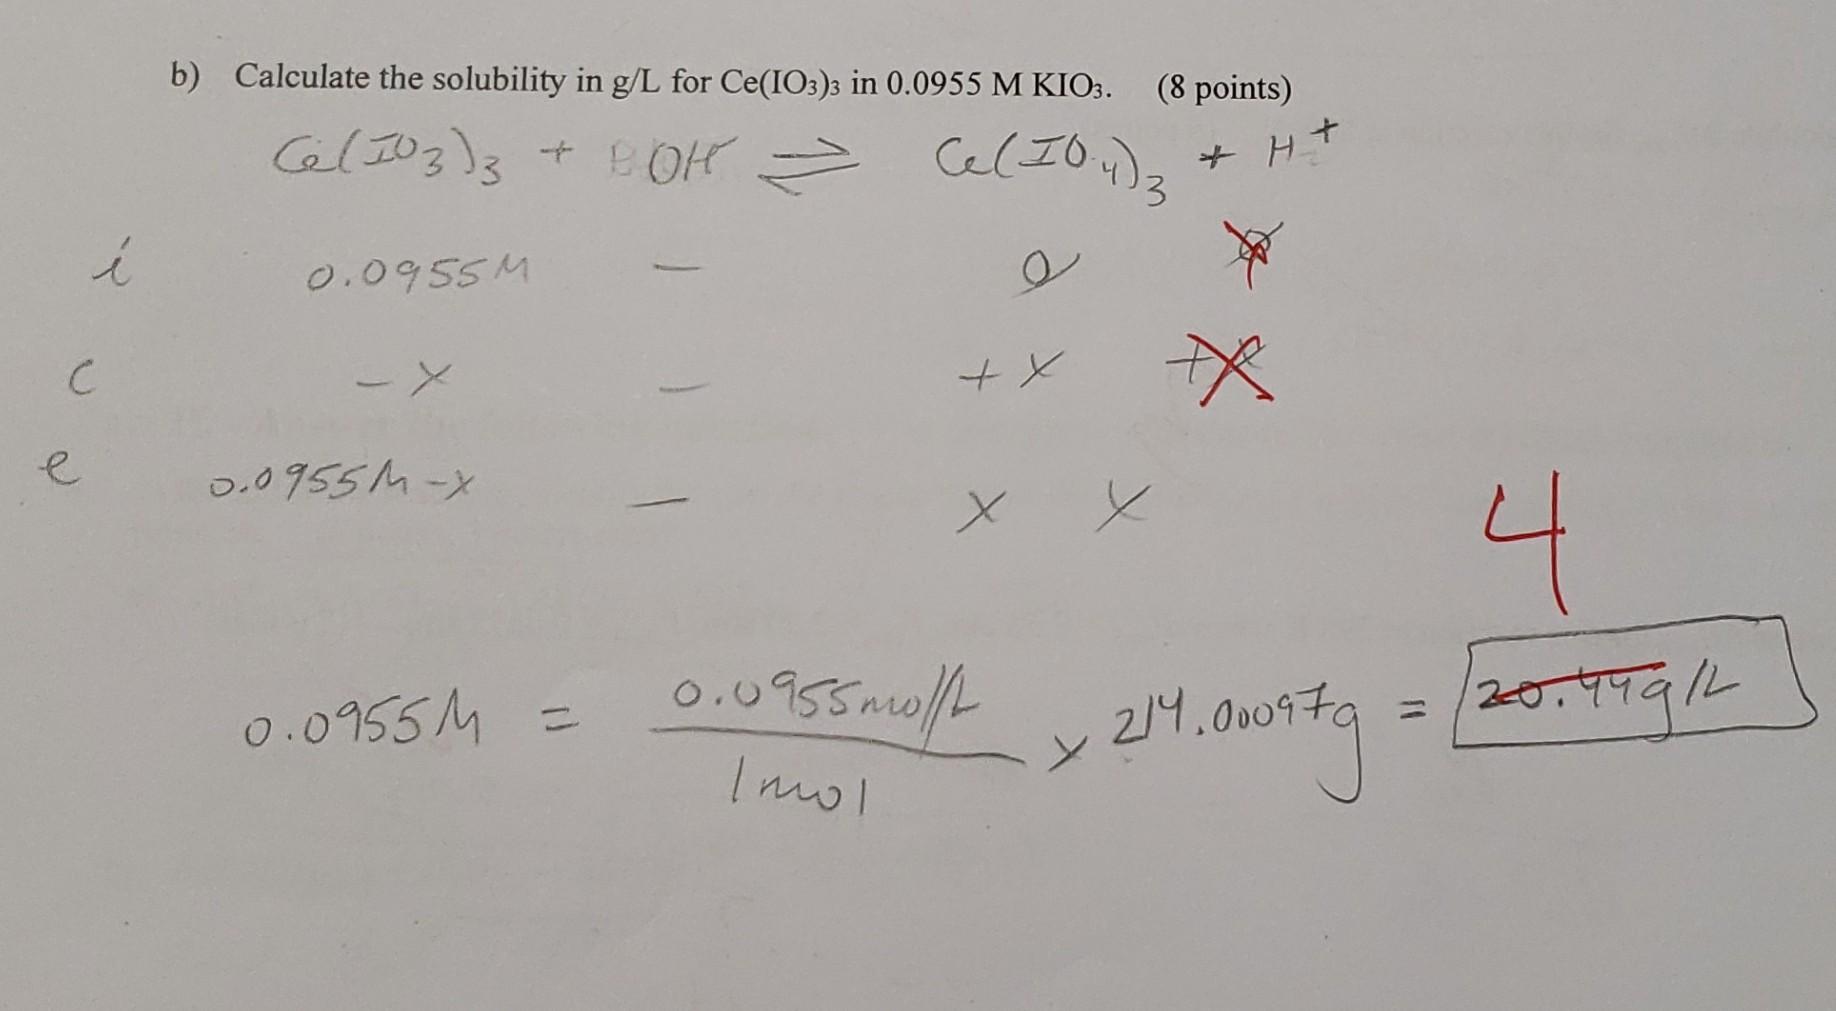 b) Calculate the solubility in g/L for Ce(IO₃)₃ in 0.0955 M KIO₃. (8 points)
Ce(IO₃)₃ + OH ⇌ Ce(IO₄)₃ + H⁺
i 0.0955M — 0
c -x — +x +x
e 0.0955M-x — x x
4
0.0955M = 0.0955mol/L / 1mol x 214.00097g = 20.44g/L